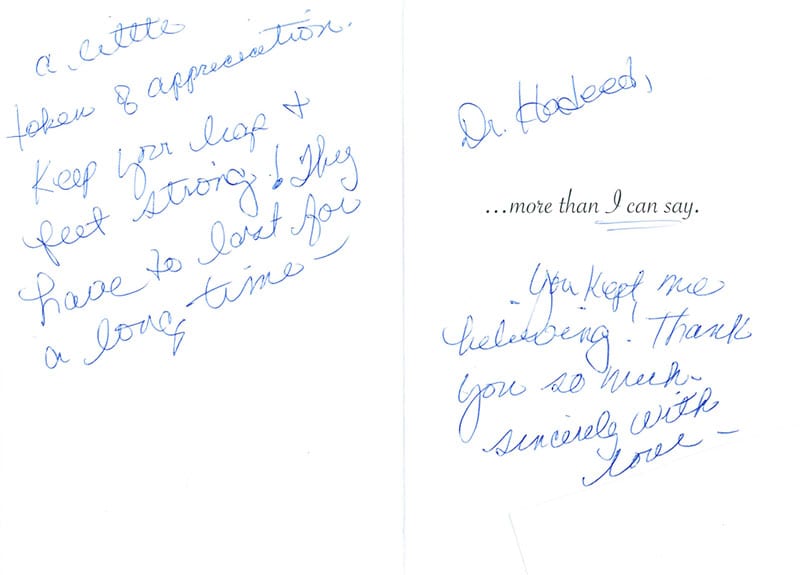 a little
token of appreciation.
Keep your legs &
feet strong! They
have to last for
a long time —
Dr. Hadeed,
...more than I can say.
You kept me
believing! Thank
you so much.
sincerely with
love —